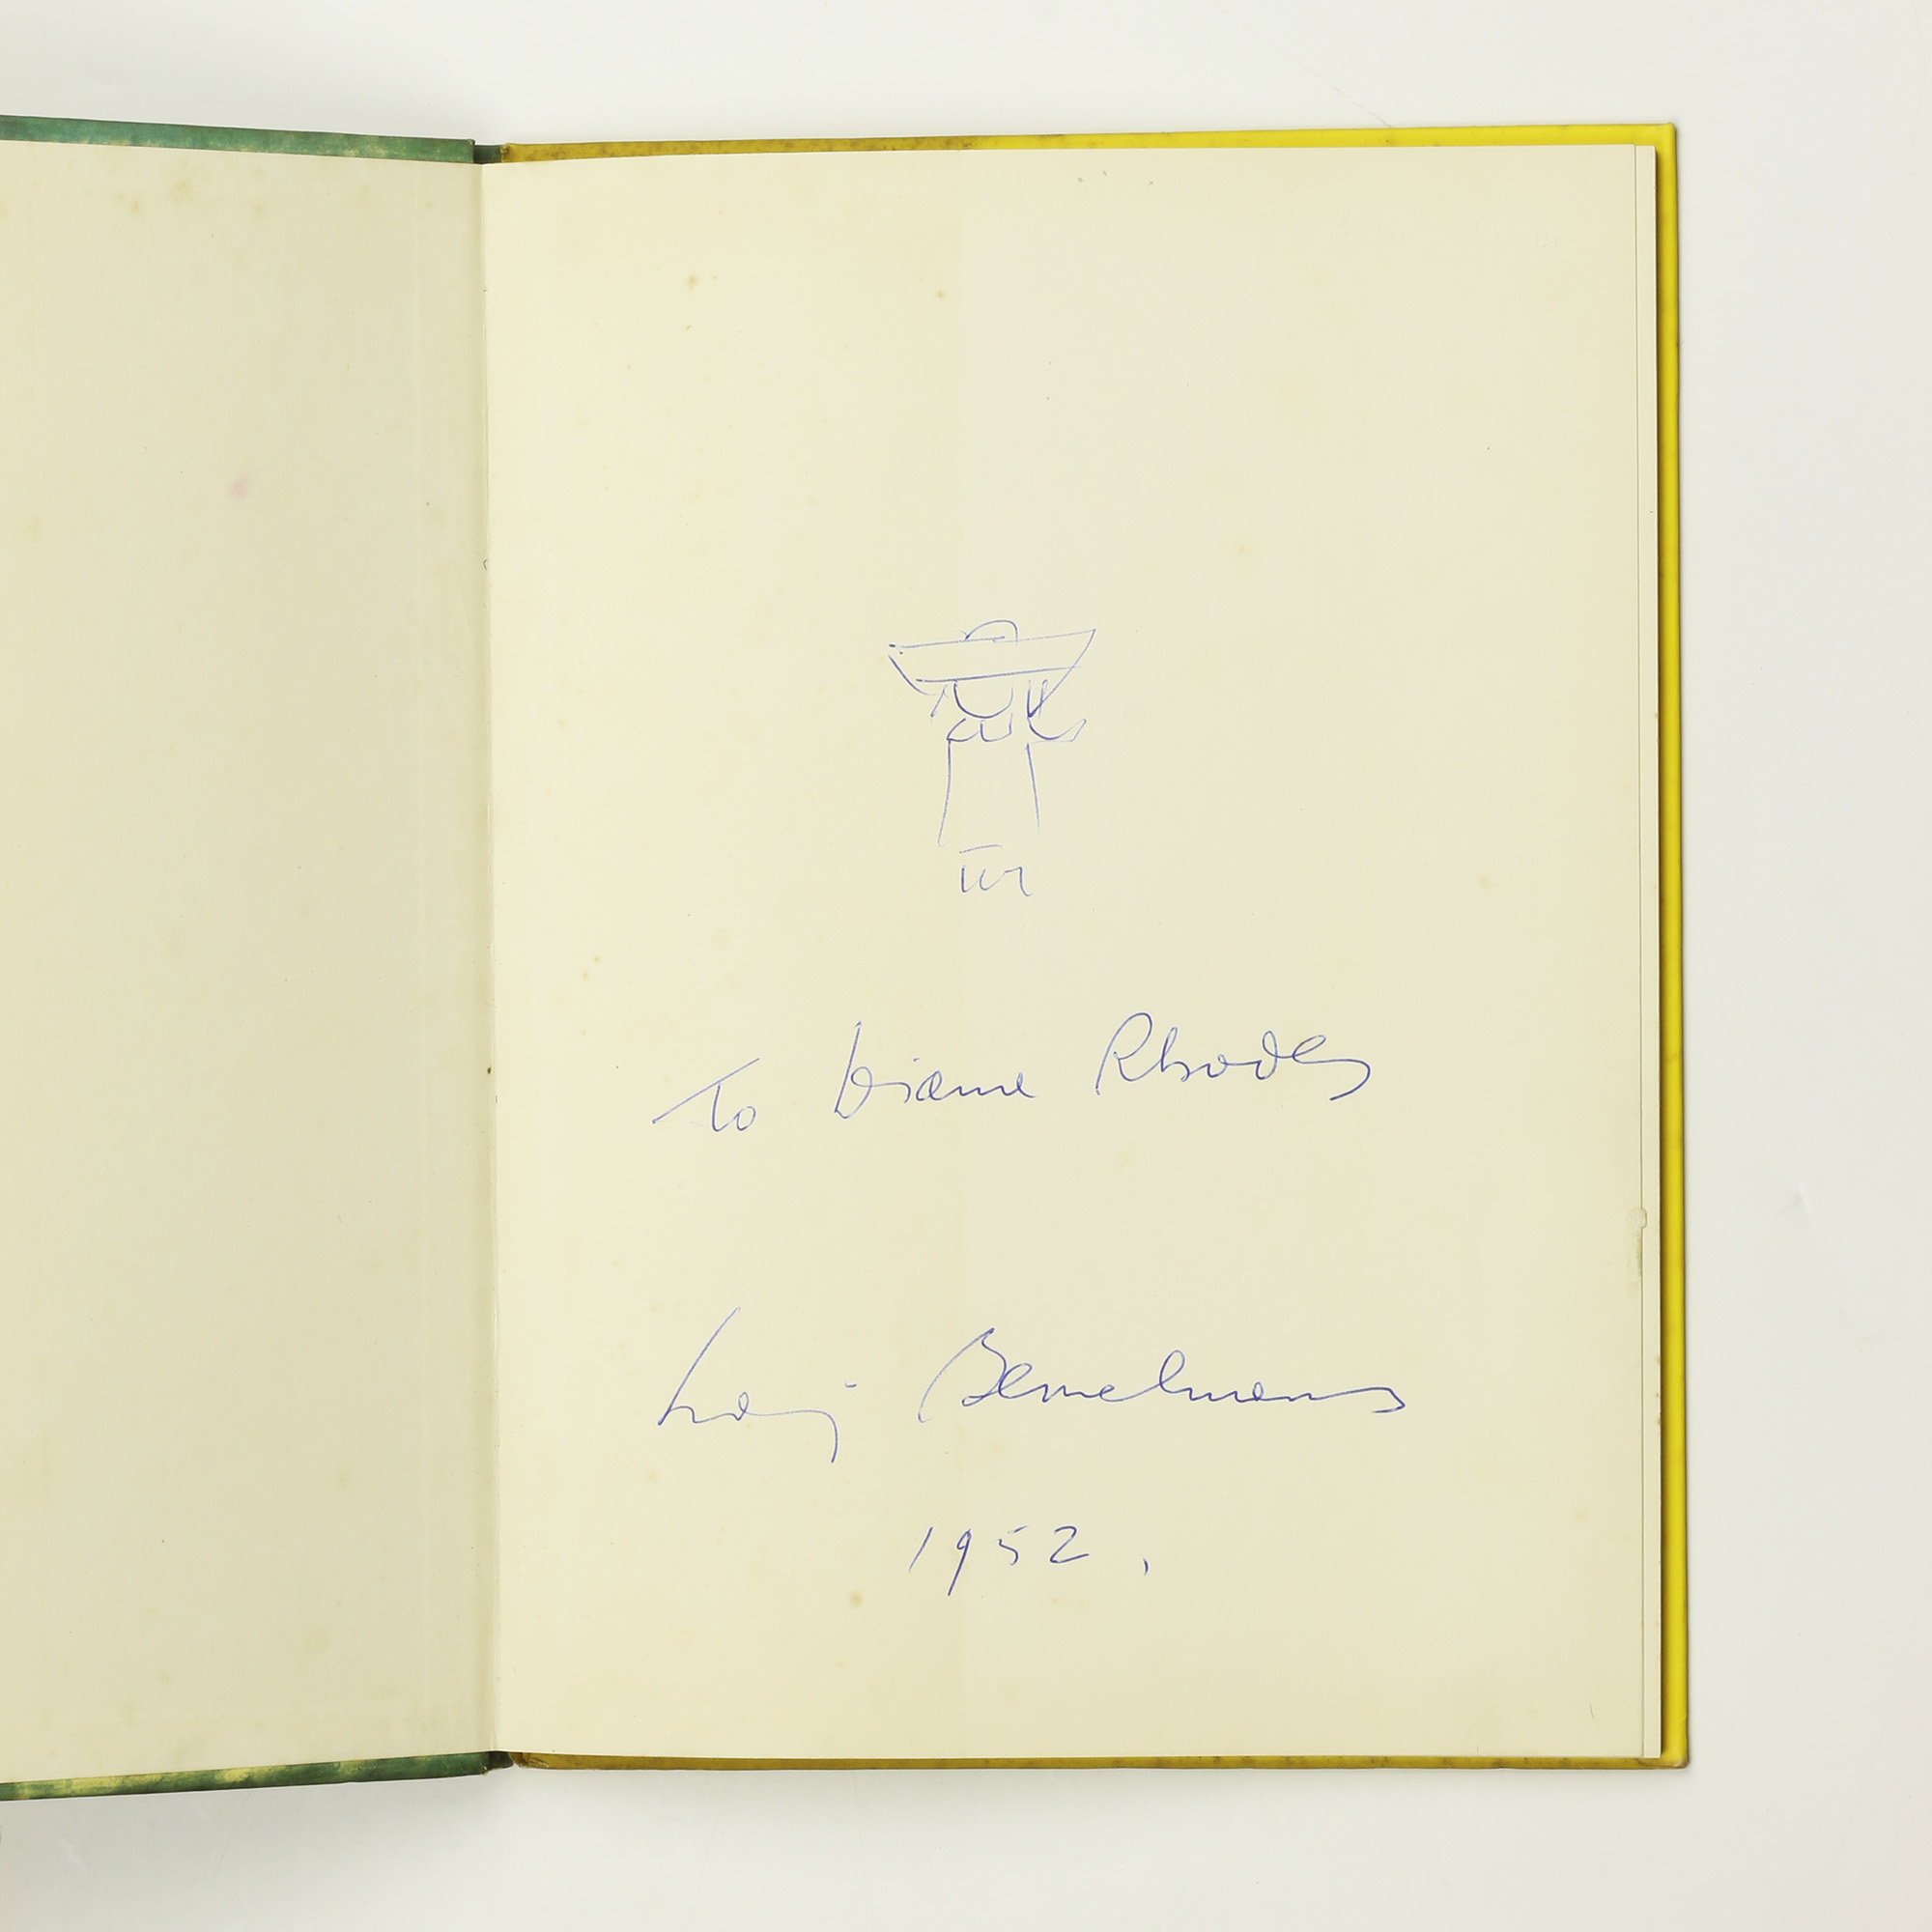 To Diane Rhodes
Ludwig Bemelmans
1952.